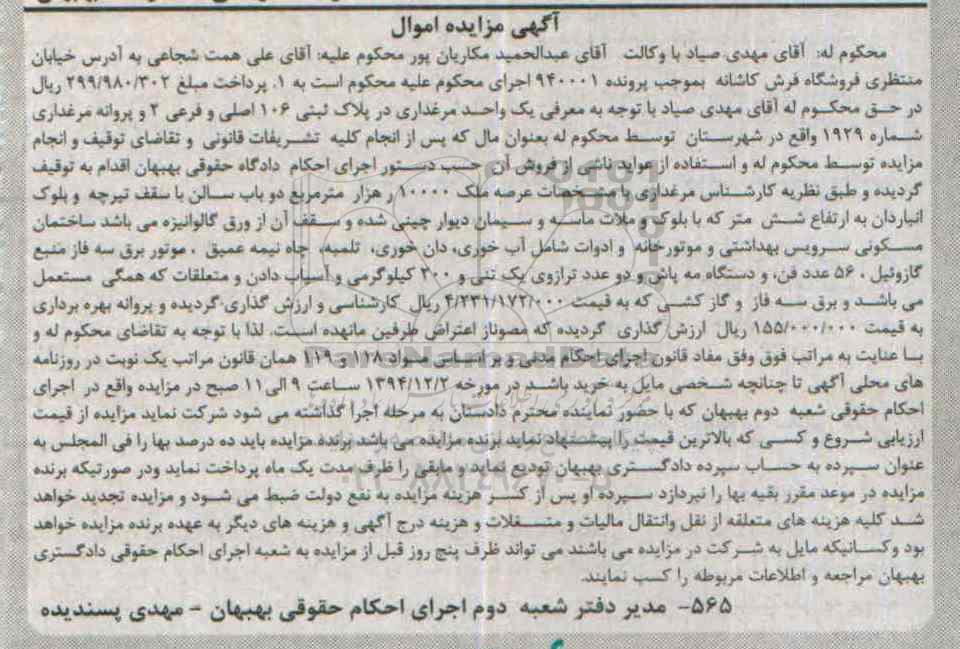 آگهی مزایده اموال
محکوم له: آقای مهدی صیاد با وکالت آقای عبدالحمید مکاریان پور محکوم علیه: آقای علی همت شجاعی به آدرس خیابان
منتظری فروشگاه فرش کاشانه بموجب پرونده ۹۴۰۰۰۱ اجرای محکوم علیه محکوم است به ۱. پرداخت مبلغ ۲۹۹/۹۸۰/۳۰۲ ریال
در حق محکوم له آقای مهدی صیاد با توجه به معرفی یک واحد مرغداری در پلاک ثبتی ۱۰۶ اصلی و فرعی ۲ و پروانه مرغداری
شماره ۱۹۲۹ واقع در شهرستان توسط محکوم له بعنوان مال که پس از انجام کلیه تشریفات قانونی و تقاضای توقیف و انجام
مزایده توسط محکوم له و استفاده از عواید ناشی از فروش آن حسب دستور اجرای احکام دادگاه حقوقی بهبهان اقدام به توقیف
گردیده و طبق نظریه کارشناس مرغداری با مشخصات عرصه ملک ۱۰۰۰۰ ر هزار مترمربع دو باب سالن با سقف تیرچه و بلوک
انباردان به ارتفاع شش متر که با بلوک و ملات ماسه و سیمان دیوار چینی شده و سقف آن از ورق گالوانیزه می باشد ساختمان
مسکونی سرویس بهداشتی و موتورخانه و ادوات شامل آب خوری، دان خوری، تلمبه، چاه نیمه عمیق ، موتور برق سه فاز منبع
گازوئیل ، ۵۶ عدد فن، و دستگاه مه پاش و دو عدد ترازوی یک تنی و ۳۰۰ کیلوگرمی و آسیاب دادن و متعلقات که همگی مستعمل
می باشد و برق سه فاز و گاز کشی که به قیمت ۴/۲۳۱/۱۷۲/۰۰۰ ریال کارشناسی و ارزش گذاری گردیده و پروانه بهره برداری
به قیمت ۱۵۵/۰۰۰/۰۰۰ ریال ارزش گذاری گردیده که مصوناز اعتراض طرفین مانهده است. لذا با توجه به تقاضای محکوم له و
با عنایت به مراتب فوق وفق مفاد قانون اجرای احکام مدنی و بر اساس مواد ۱۱۸ و ۱۱۹ همان قانون مراتب یک نوبت در روزنامه
های محلی آگهی تا چنانچه شخصی مایل به خرید باشد در مورخه ۱۳۹۴/۱۲/۲ ساعت ۹ الی ۱۱ صبح در مزایده واقع در اجرای
احکام حقوقی شعبه دوم بهبهان که با حضور نماینده محترم دادستان به مرحله اجرا گذاشته می شود شرکت نماید مزایده از قیمت
ارزیابی شروع و کسی که بالاترین قیمت را پیشنهاد نماید برنده مزایده می باشد برنده مزایده باید ده درصد بها را فی المجلس به
عنوان سپرده به حساب سپرده دادگستری بهبهان تودیع نماید و مابقی را ظرف مدت یک ماه پرداخت نماید ودر صورتیکه برنده
مزایده در موعد مقرر بقیه بها را نپردازد سپرده او پس از کسر هزینه مزایده به نفع دولت ضبط می شود و مزایده تجدید خواهد
شد کلیه هزینه های متعلقه از نقل وانتقال مالیات و مستغلات و هزینه درج آگهی و هزینه های دیگر به عهده برنده مزایده خواهد
بود وکسانیکه مایل به شرکت در مزایده می باشند می تواند ظرف پنج روز قبل از مزایده به شعبه اجرای احکام حقوقی دادگستری
بهبهان مراجعه و اطلاعات مربوطه را کسب نمایند.
۵۶۵- مدیر دفتر شعبه دوم اجرای احکام حقوقی بهبهان - مهدی پسندیده